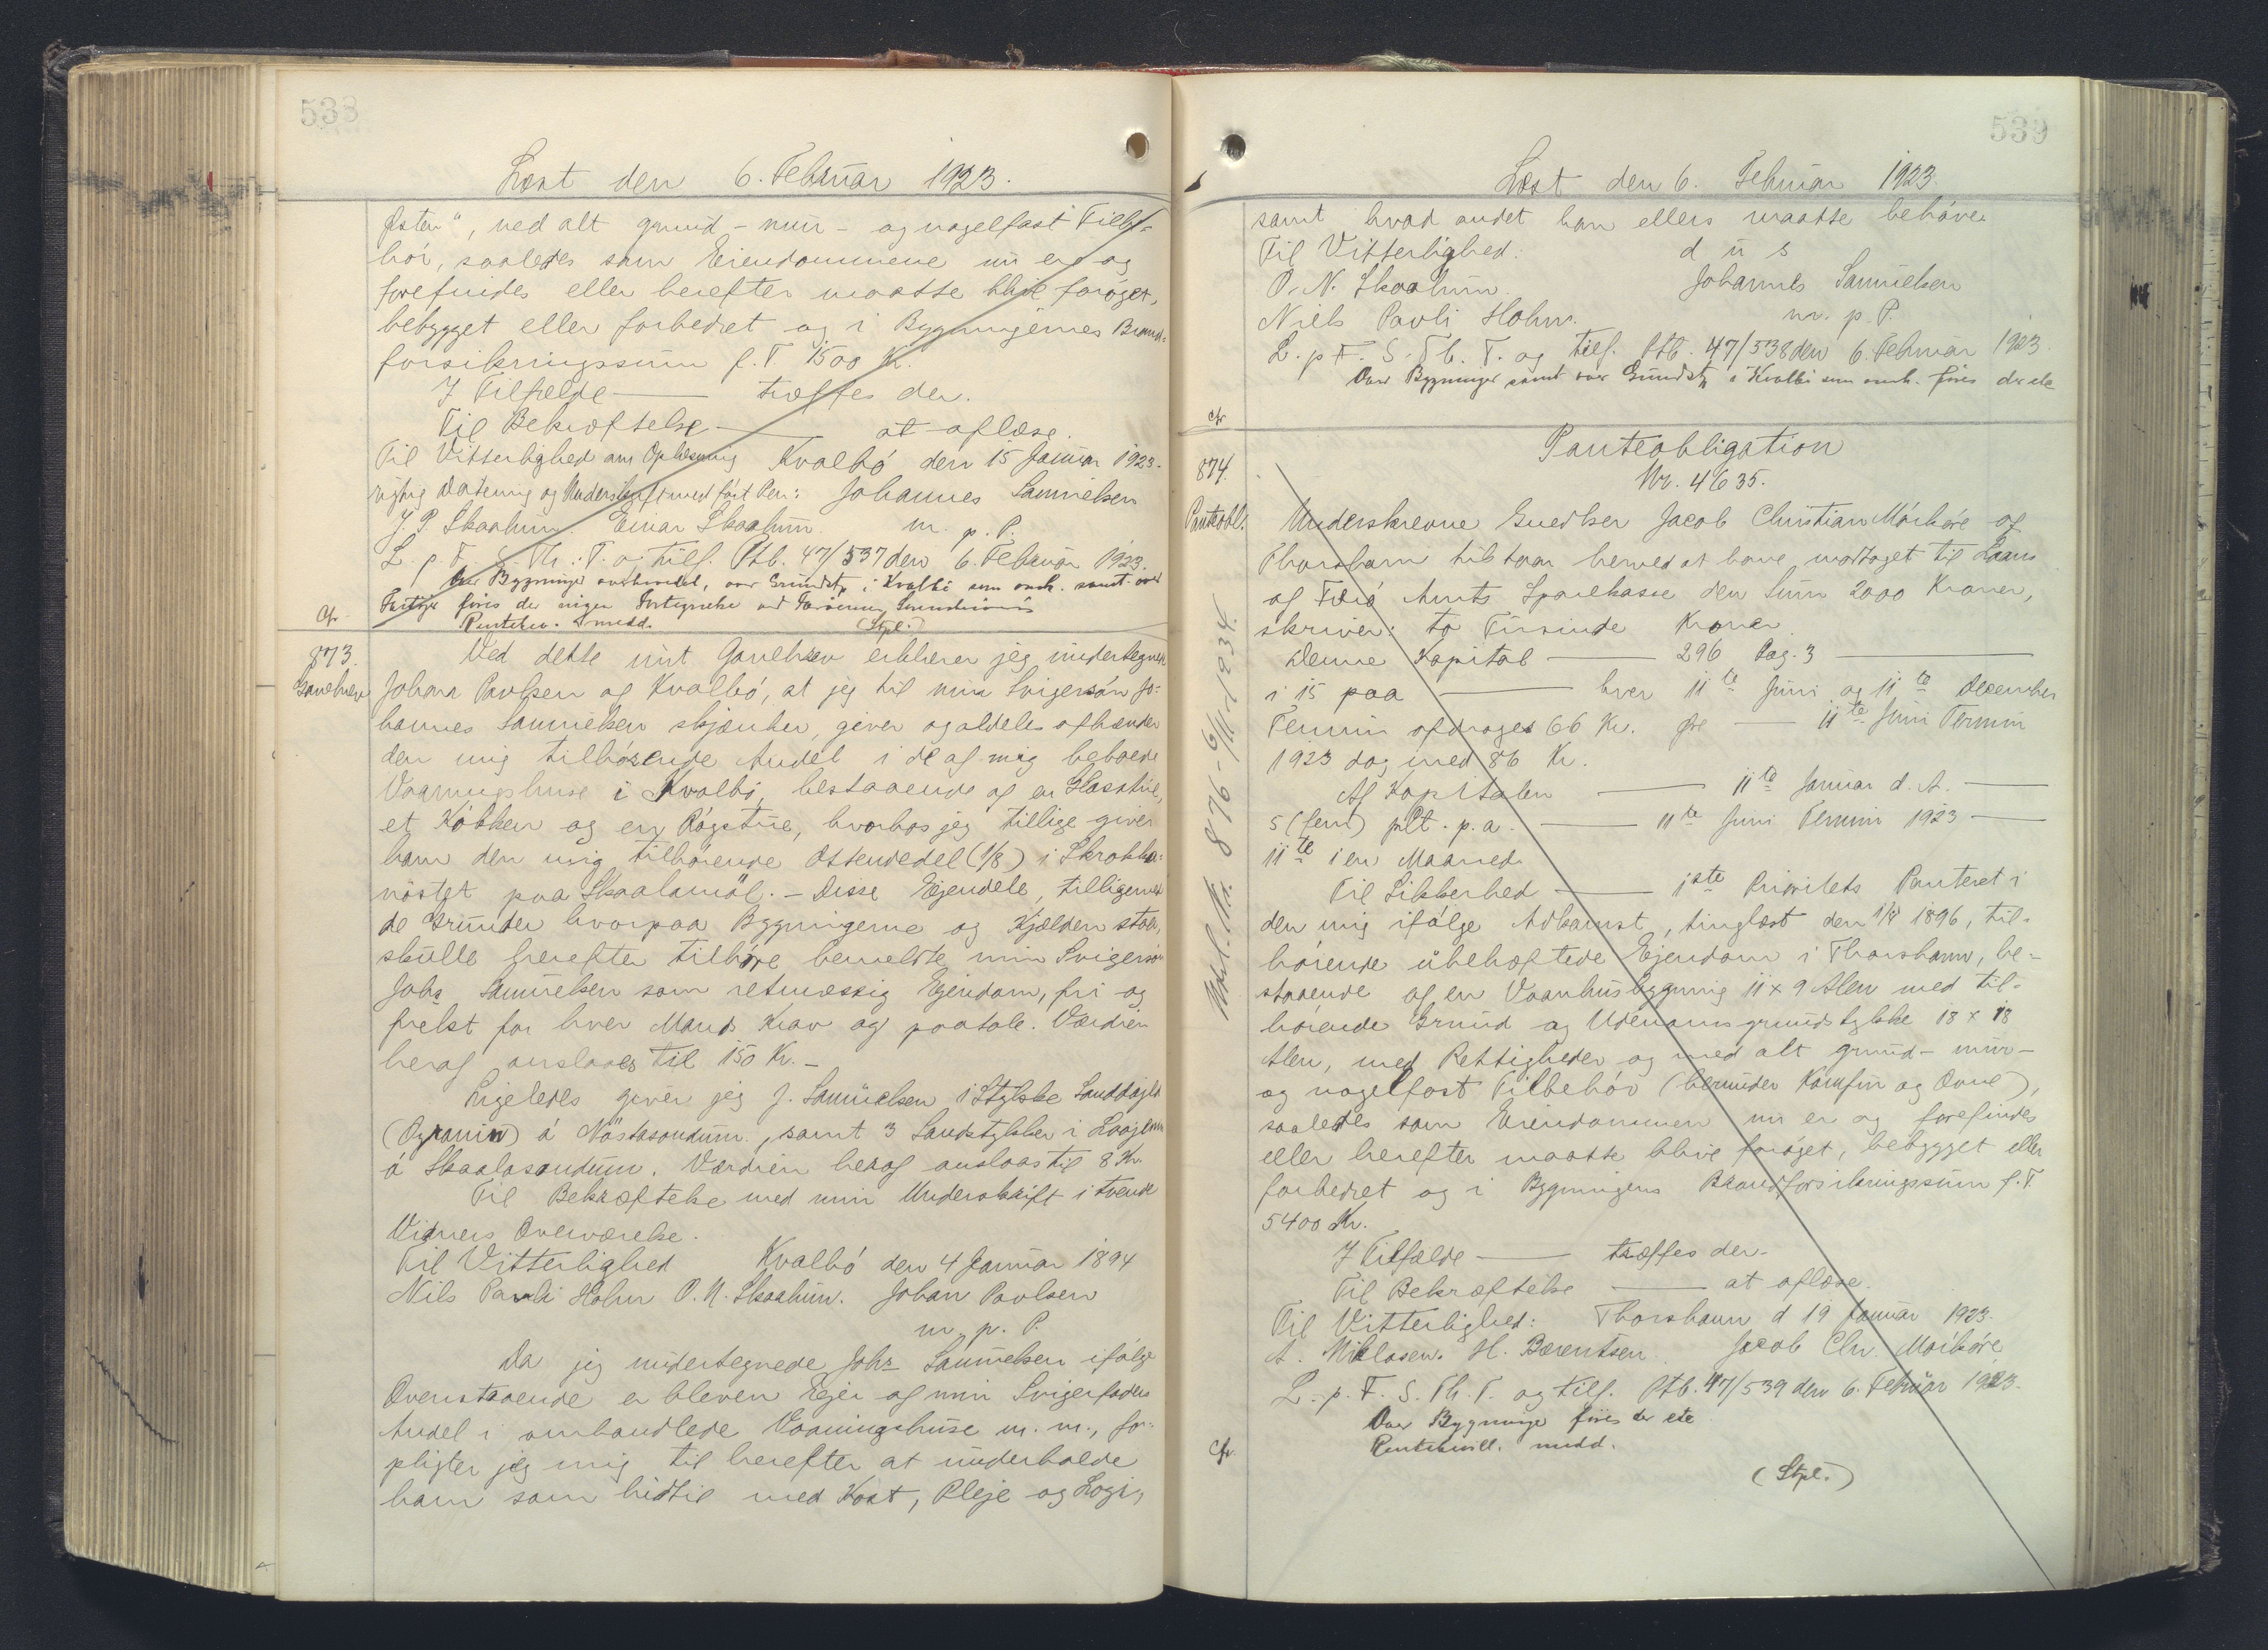 538
Læst den 6. Februar 1923.
Østen", med alt grund- mur- og nagelfast Tilbe-
hør, saaledes som Eiendommene nu er og
forefindes eller herefter maatte blive forøget,
bebygget eller forbedret og i Bygningernes Brand-
forsikringssum f. T 1500 Kr.
I Tilfælde — træffes den.
Til Bekræftelse — at aflæse.
Til Vitterlighed om Oplæsning Kvalbø den 15 Januar 1923.
rigtig Datering og Underskrift med ført Pen: Johannes Samuelsen
J. P. Skaalum Einar Skaalum. m. p. P.
L. p. F. S. Th. T. og tilf. Ptb. 47/537 den 6. Februar 1923.
Over Bygninger overhovedet, over Grundst. i Kvalbø som omh. samt over
Fartøjer føres der ingen Fortegnelse ved Færøernes Sorenskriveri
Cfr. (Stpl.)
873. Ved dette mit Gavebrev erklærer jeg undertegnede
Gavebrev Johan Paulsen af Kvalbø, at jeg til min Svigersøn Jo-
hannes Samuelsen skjænker, giver og aldeles afhænder
den mig tilhørende Andel i de af mig beboede
Vaaningshuse i Kvalbø, bestaaende af en Glasstue,
et Køkken og en Røgstue, hvorhos jeg tillige giver
ham den mig tilhørende Ottendedel (1/8) i Skrokka-
nøstet paa Skaalamøl. - Disse Ejendele, tilligemed
de Grunde hvorpaa Bygningerne og Kjælden staa,
skulle herefter tilhøre bemeldte min Svigersøn
Johs Samuelsen som retmæssig Ejendom, fri og
frelst for hver Mands Krav og paatale. Værdien
heraf anslaaes til 150 Kr. -
Ligeledes giver jeg J. Samuelsen 1 Stykke
á Nøstasondum, samt 3 Landstykker i
á Skaalasondum. Værdien heraf anslaas til 8 Kr.
Til Bekræftelse med min Underskrift i tvende
Vidners Overværelse.
Til Vitterlighed Kvalbø den 4 Januar 1894
Nils Pauli Holm O. N. Skaalum. Johan Paulsen
m. p. P.
Da jeg undertegnede Johs Samuelsen ifølge
Ovenstaaende er bleven Ejer af min Svigerfaders
Andel i omhandlede Vaaningshuse m. m., for-
pligter jeg mig til herefter at underholde
ham som hidtil med Kost, Pleje og Logi,
539
Læst den 6. Februar 1923.
samt hvad andet han ellers maatte behøve
Til Vitterlighed: d u s
O. N. Skaalum. Johannes Samuelsen
Niels Pauli Holm. m. p. P.
L. p. F. S. Th. T. og tilf. Ptb. 47/538 den 6. Februar 1923.
Over Bygninger samt over Grundst. i Kvalbø som omh. føres der etc
Cfr
Panteobligation
874. Nr. 4635.
Panteobl. Underskrevne Snedker Jacob Christian Mørkøre af
Thorshavn tilstaar herved at have modtaget til Laans
af Færø Amts Sparekasse den Sum 2000 Kroner,
skriver: to Tusinde Kroner
Denne Kapital — 296 Pag. 3 —
i 15 paa — hver 11te Juni og 11te December
Termin afdrages 66 Kr. — 11te Juni Termin
1923 dog med 86 Kr.
Af Kapitalen — 11te Januar d. A. —
5 (fem) pCt. p. a. — 11te Juni Termin 1923 —
11te i en Maaned.
Til Sikkerhed — 1ste Prioritets Panteret i
den mig ifølge Adkomst, tinglæst den 1/8 1896, til-
hørende ubehæftede Ejendom i Thorshavn, be-
staaende af en Vaanhusbygning 11 x 9 Alen med til-
hørende Grund og Udenomsgrundstykke 18 x 18
Alen, med Rettigheder og med alt grund- mur-
og nagelfast Tilbehør (herunder Komfur og Ovne),
saaledes som Eiendommen nu er og forefindes
eller herefter maatte blive forøget, bebygget eller
forbedret og i Bygningens Brandforsikringssum f. T
5400 Kr.
I Tilfælde — træffes den.
Til Bekræftelse — at aflæse.
Til Vitterlighed: Thorshavn d 19 Januar 1923.
A. Niklasen. H. Bærentsen. Jacob Chr. Mørkøre
L. p. F. S. Th. T. og tilf. Ptb. 47/539 den 6. Februar 1923.
Over Bygninger føres der etc
Cfr.
(Stpl.)